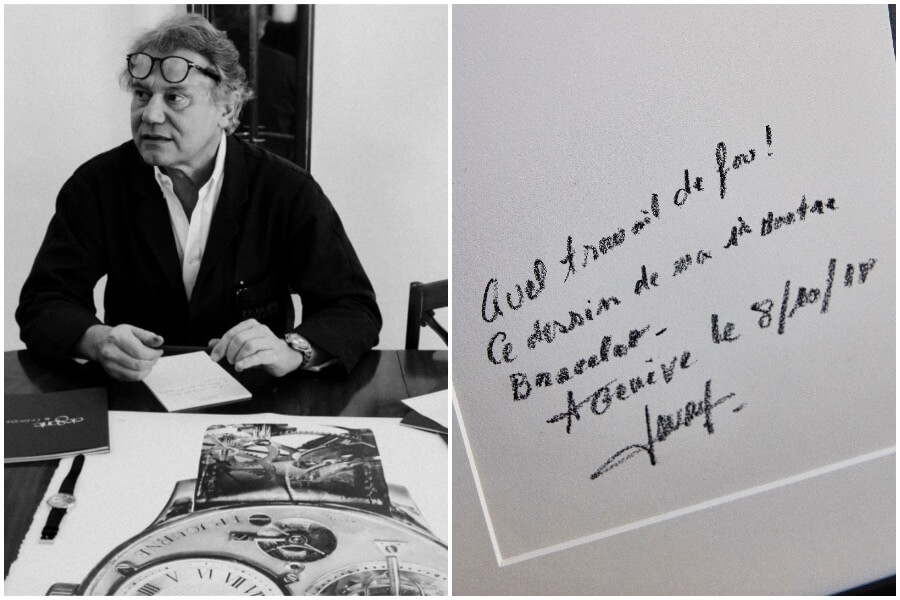 F.P. JOURNE
Quel travail de fou!
Ce dessin de ma 1è Montre
Bracelet.
A Genève le 8/10/18